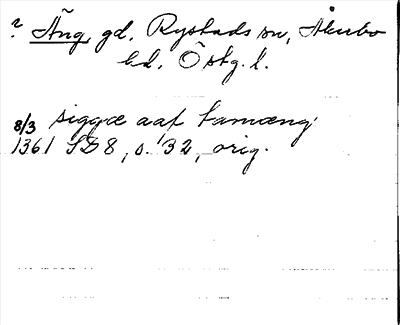 ? Äng, gd, Rystads sn, Åkerbo
hd, Östg. l.
siggæ aaf tamæng
8/3
1361 SD 8, s. 32, orig.